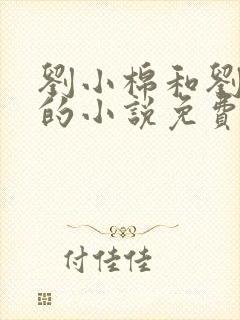 劉小棉和劉
的小說免費
付佳佳